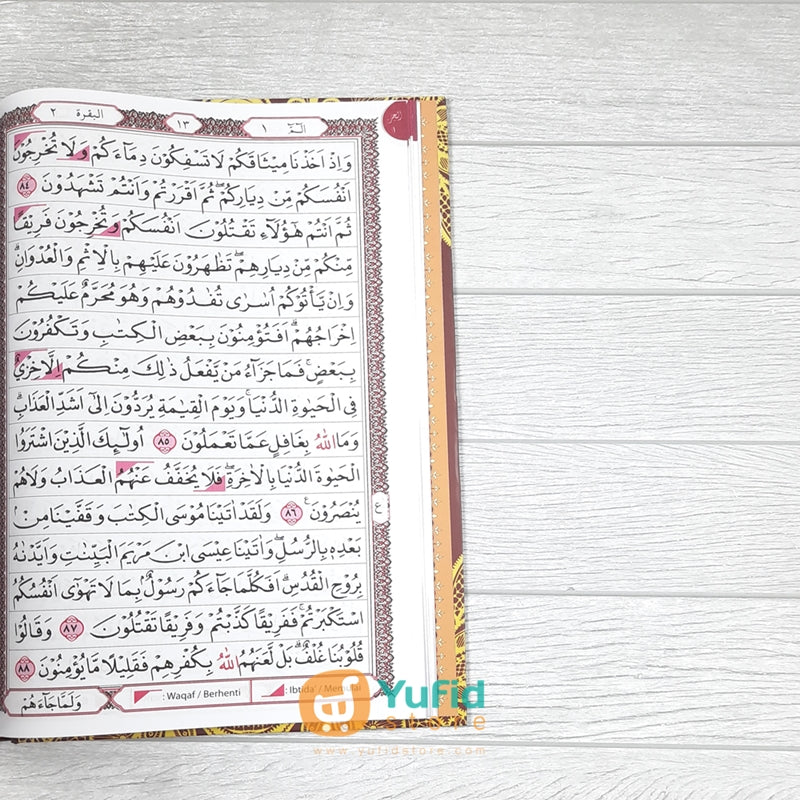 البقرة ٢
١٣
الٓمّٓ ١
الجزء
١
وَاِذْ اَخَذْنَا مِيْثَاقَكُمْ لَا تَسْفِكُوْنَ دِمَاۤءَكُمْ وَلَا تُخْرِجُوْنَ
اَنْفُسَكُمْ مِّنْ دِيَارِكُمْۖ ثُمَّ اَقْرَرْتُمْ وَاَنْتُمْ تَشْهَدُوْنَ ٨٤
ثُمَّ اَنْتُمْ هٰٓؤُلَاۤءِ تَقْتُلُوْنَ اَنْفُسَكُمْ وَتُخْرِجُوْنَ فَرِيْقًا
مِّنْكُمْ مِّنْ دِيَارِهِمْۖ تَظٰهَرُوْنَ عَلَيْهِمْ بِالْاِثْمِ وَالْعُدْوَانِۗ
وَاِنْ يَّأْتُوْكُمْ اُسٰرٰى تُفٰدُوْهُمْ وَهُوَ مُحَرَّمٌ عَلَيْكُمْ
اِخْرَاجُهُمْۗ اَفَتُؤْمِنُوْنَ بِبَعْضِ الْكِتٰبِ وَتَكْفُرُوْنَ
بِبَعْضٍۚ فَمَا جَزَاۤءُ مَنْ يَّفْعَلُ ذٰلِكَ مِنْكُمْ اِلَّا خِزْيٌ
فِى الْحَيٰوةِ الدُّنْيَاۚ وَيَوْمَ الْقِيٰمَةِ يُرَدُّوْنَ اِلٰٓى اَشَدِّ الْعَذَابِۗ
وَمَا اللّٰهُ بِغَافِلٍ عَمَّا تَعْمَلُوْنَ ٨٥ اُولٰۤىِٕكَ الَّذِيْنَ اشْتَرَوُا
الْحَيٰوةَ الدُّنْيَا بِالْاٰخِرَةِۖ فَلَا يُخَفَّفُ عَنْهُمُ الْعَذَابُ وَلَا هُمْ
يُنْصَرُوْنَ ࣖ ٨٦ وَلَقَدْ اٰتَيْنَا مُوْسَى الْكِتٰبَ وَقَفَّيْنَا مِنْۢ
ع
بَعْدِهٖ بِالرُّسُلِۖ وَاٰتَيْنَا عِيْسَى ابْنَ مَرْيَمَ الْبَيِّنٰتِ وَاَيَّدْنٰهُ
بِرُوْحِ الْقُدُسِۗ اَفَكُلَّمَا جَاۤءَكُمْ رَسُوْلٌۢ بِمَا لَا تَهْوٰٓى اَنْفُسُكُمُ
اسْتَكْبَرْتُمْۚ فَفَرِيْقًا كَذَّبْتُمْ وَفَرِيْقًا تَقْتُلُوْنَ ٨٧ وَقَالُوْا
قُلُوْبُنَا غُلْفٌۗ بَلْ لَّعَنَهُمُ اللّٰهُ بِكُفْرِهِمْ فَقَلِيْلًا مَّا يُؤْمِنُوْنَ ٨٨
: Waqaf / Berhenti
: Ibtida' / Memulai
وَلَمَّا جَاۤءَهُمْ
Yufid
store
www.yufidstore.com